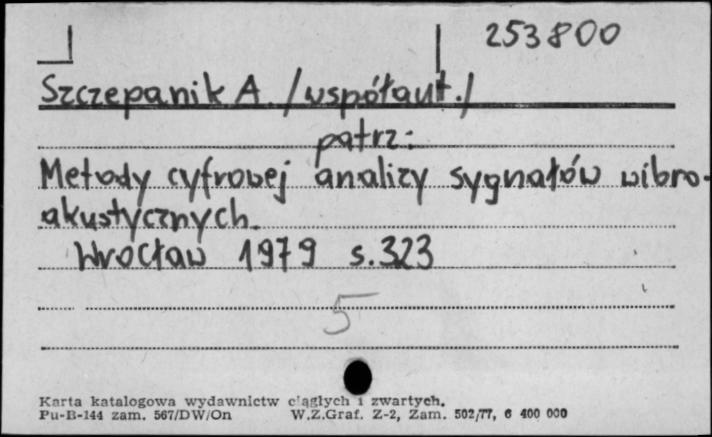 253800
Szczepanik A. /współaut./
patrz:
Metody cyfrowej analizy sygnałów wibro-
akustycznych.
Wrocław 1979 s. 323
5
Karta katalogowa wydawnictw ciągłych i zwartych.
Pu-B-144 zam. 567/DW/On W.Z.Graf. Z-2, Zam. 502/77, 6 400 000